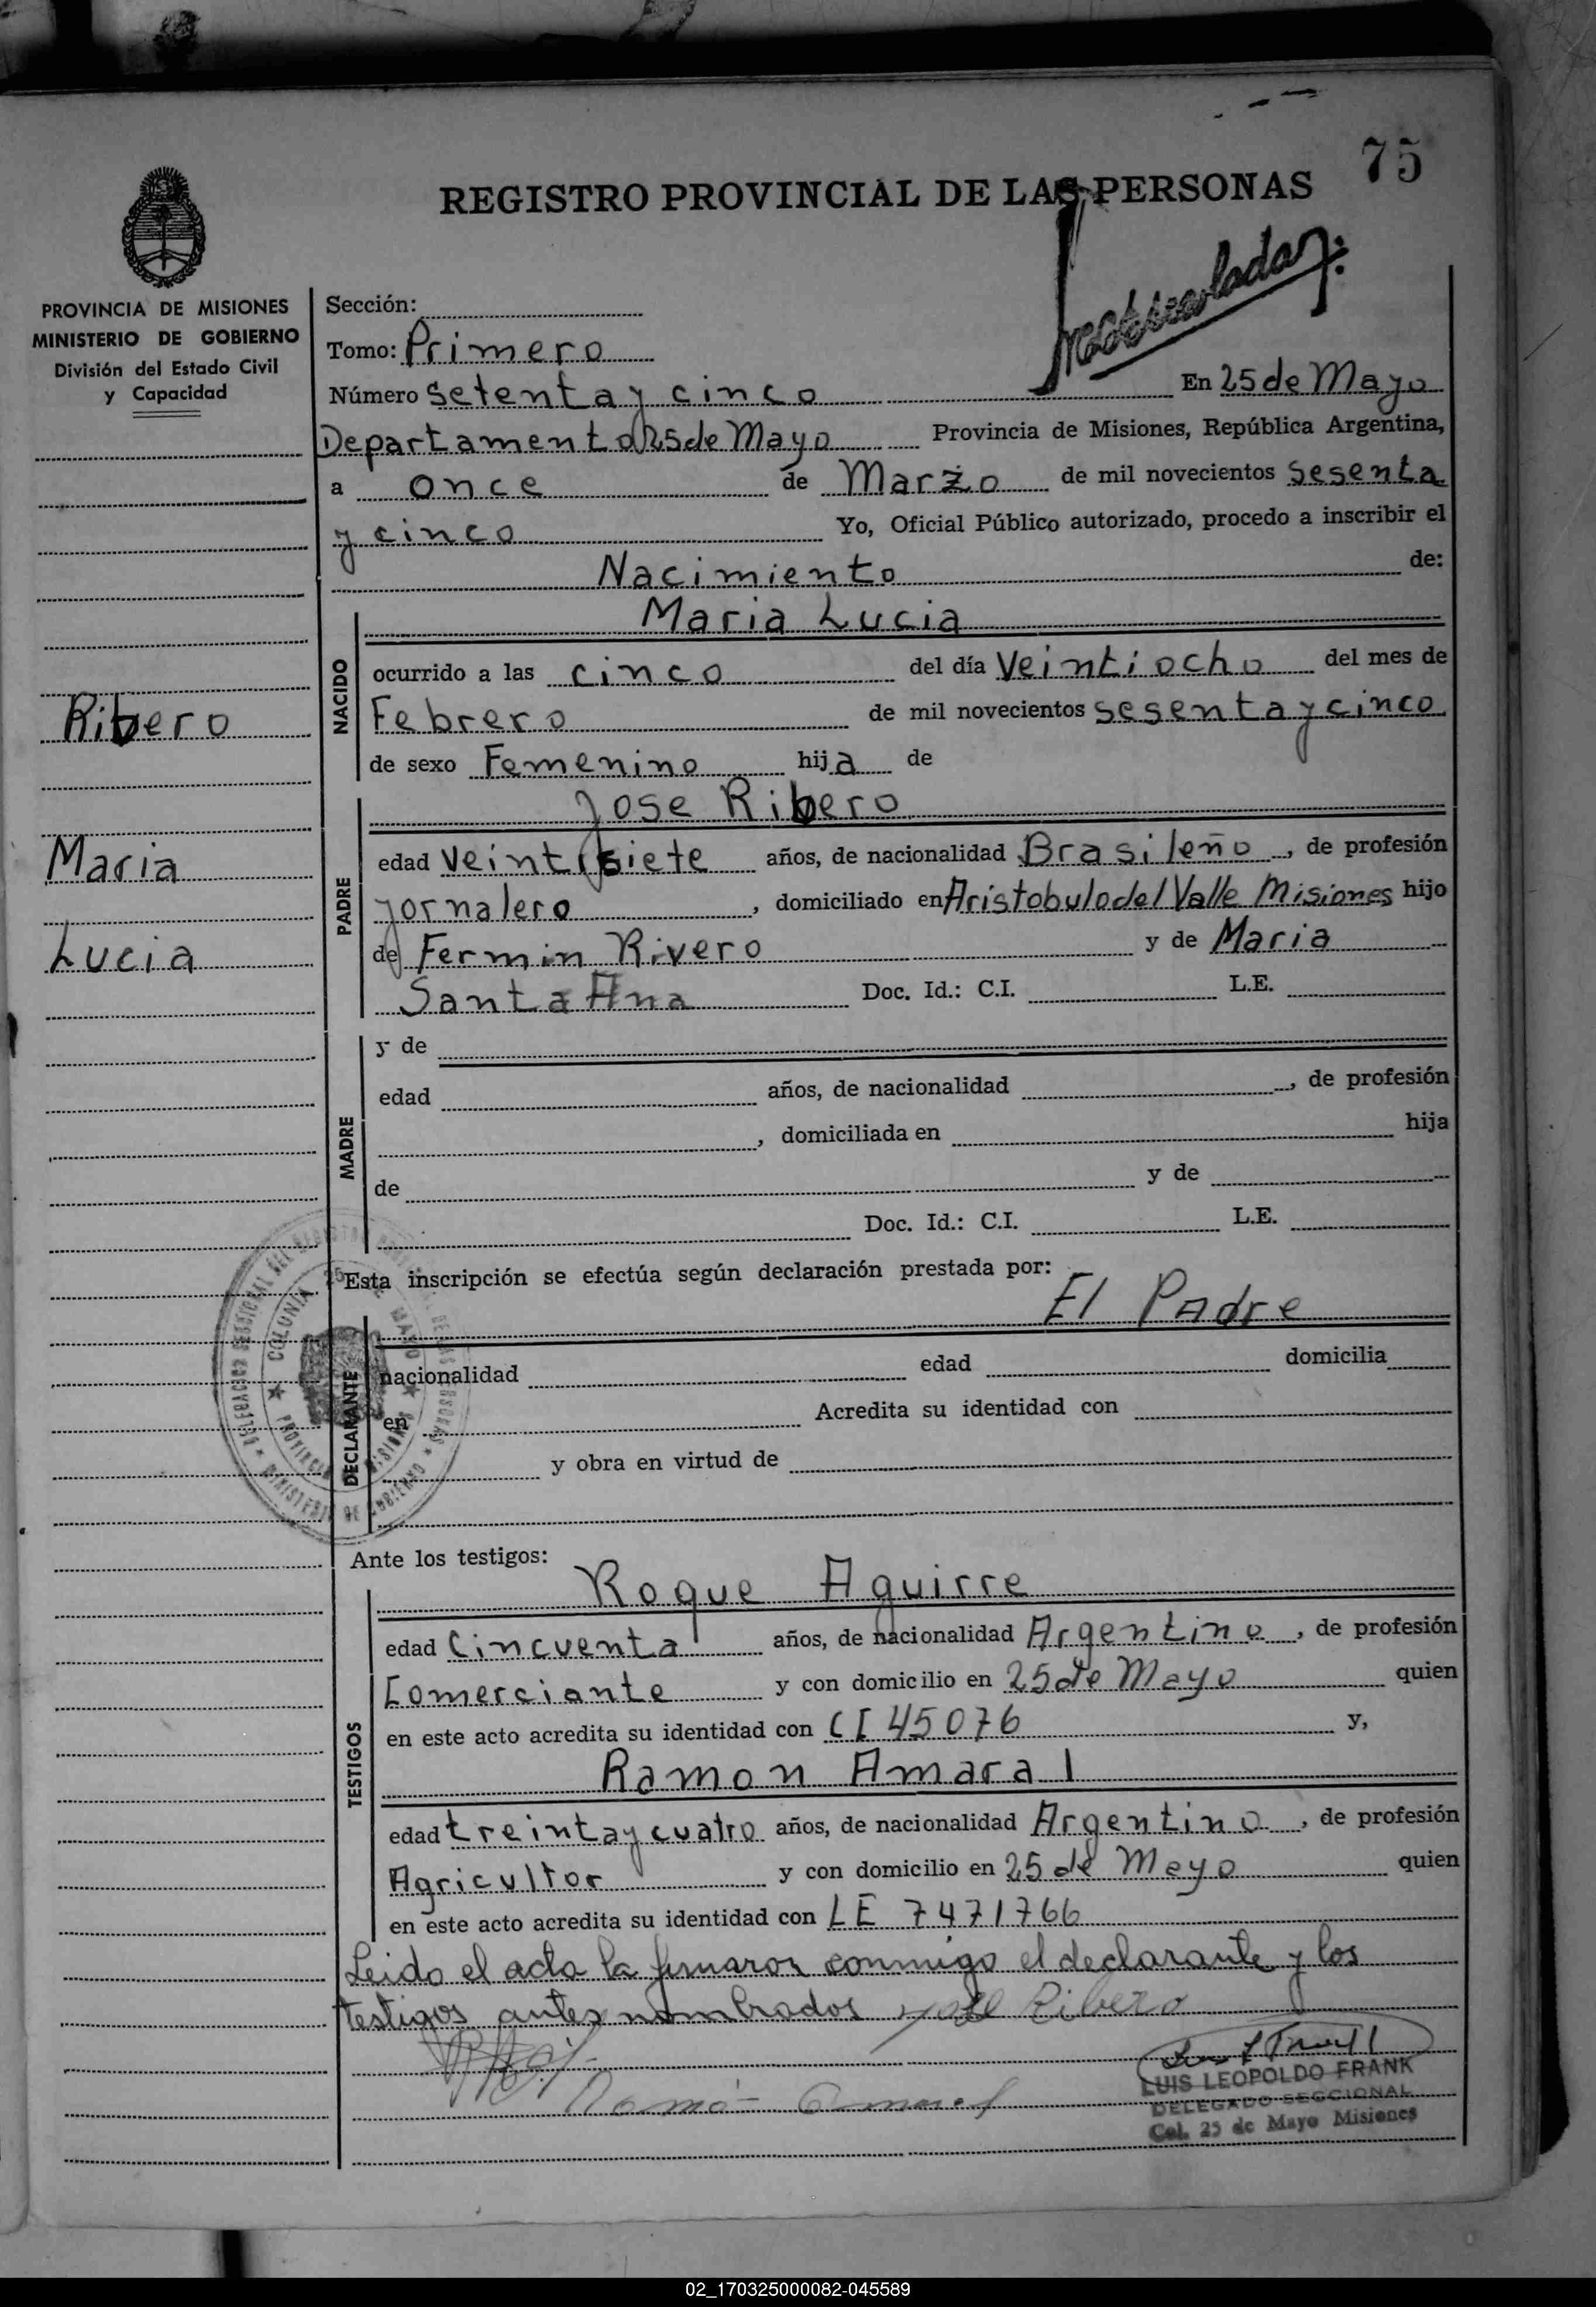 75
REGISTRO PROVINCIAL DE LAS PERSONAS
PROVINCIA DE MISIONES
MINISTERIO DE GOBIERNO
División del Estado Civil
y Capacidad
Sección:
Tomo: Primero
Número setenta y cinco En 25 de Mayo
Departamento 25 de Mayo Provincia de Misiones, República Argentina,
a once de Marzo de mil novecientos sesenta
y cinco Yo, Oficial Público autorizado, procedo a inscribir el
Nacimiento de:
NACIDO
Maria Lucia
ocurrido a las cinco del día Veintiocho del mes de
Febrero de mil novecientos sesenta y cinco
de sexo Femenino hija de
Ribero
Maria
Lucia
PADRE
Jose Ribero
edad veintisiete años, de nacionalidad Brasileño, de profesión
jornalero, domiciliado en Aristobulo del Valle Misiones hijo
de Fermin Rivero y de Maria
Santa Ana Doc. Id.: C.I. L.E.
MADRE
y de
edad años, de nacionalidad , de profesión
, domiciliada en hija
de y de
Doc. Id.: C.I. L.E.
Esta inscripción se efectúa según declaración prestada por:
El Padre
DECLARANTE
nacionalidad edad domicilia
en Acredita su identidad con
y obra en virtud de
COLONIA 25 DE MAYO
PROVINCIA MISIONES
MINISTERIO DE GOBIERNO
Ante los testigos:
TESTIGOS
Roque Aguirre
edad Cincuenta años, de nacionalidad Argentino, de profesión
Comerciante y con domicilio en 25 de Mayo quien
en este acto acredita su identidad con CI 45076 y,
Ramon Amaral
edad treinta y cuatro años, de nacionalidad Argentino, de profesión
Agricultor y con domicilio en 25 de Mayo quien
en este acto acredita su identidad con LE 7471766
Leido el acta la firmaron conmigo el declarante y los
testigos antes nombrados Jose Ribero
LUIS LEOPOLDO FRANK
DELEGADO SECCIONAL
Col. 25 de Mayo Misiones
02_170325000082-045589